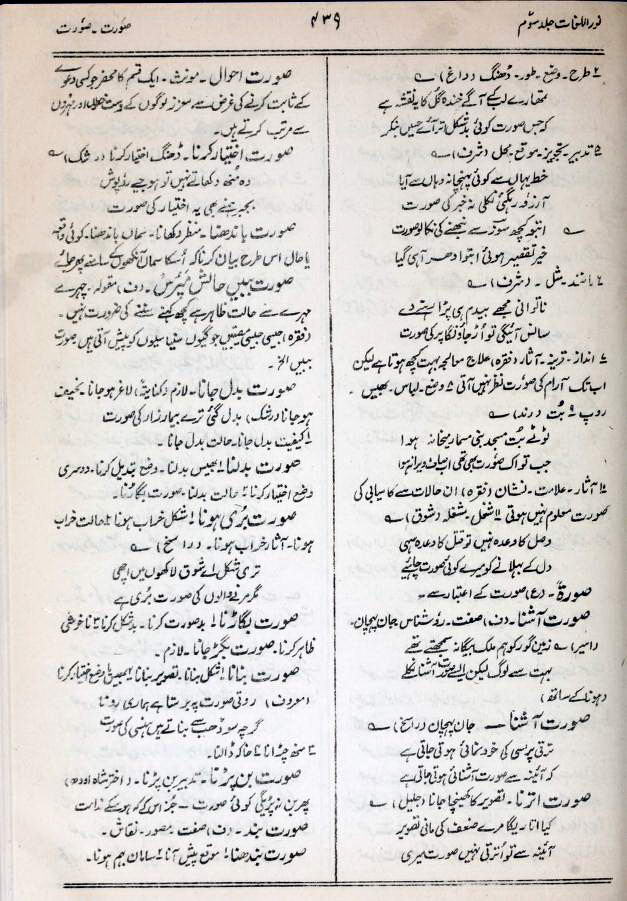 نور اللغات جلد سوّم
۴۳۹
صوٗرت ۔ صوٗرت
۴ طرح ۔ وضع ۔ طور ۔ ڈھنگ (داغ) ؎
تمھارے لب کے آگے خندۂ گل کا یہ نقشہ ہے
کہ جس صورت کوئی بد شکل اترائے حسیں ہوکر
۵ تدبیر ۔ تجویز ۔ موقع ۔ محل (شرف) ؎
خط یہاں سے کوئی پہنچا نہ وہاں سے آیا
آرزو رہ گئی نکلی نہ خبر کی صورت
اب تو کچھ سوچ کے نبھنے کی نکالو صورت
خیر تقصیر ہوئی اب تو ادھر آ ہی گیا
۶ مانند ۔ مثل ۔ (شرف) ؎
ناتوانی مجھے بیدم ہی پڑا رہنے دے
سانس آئیگی تو اڑ جاؤنگا پر کی صورت
۷ انداز ۔ قرینہ ۔ آثار (فقرہ) علاج معالجہ بہت کچھ ہوتا ہے لیکن
اب تک آرام کی صوٗرت نظر نہیں آتی ۸ وضع ۔ لباس ۔ بھیس ۔
روپ ۹ بُت (رند) ؎
ٹوٹے بُت مسجد بنی مسمار بتخانہ ہوا
جب تو اک صوٗرت بھی تھی اب صاف ویرانہ ہوا
۱۰ آثار ۔ علامت ۔ نشان (فقرہ) ان حالات سے کامیابی کی
صورت معلوم نہیں ہوتی ۱۱ شغل ۔ مشغلہ (شوق) ؎
وصل کا وعدہ نہیں تو قتل کا وعدہ سہی
دل کے بہلانے کو میرے کوئی صورت چاہیے
صورۃً ۔ (ع) صورت کے اعتبار سے ۔
صورت آشنا ۔ (ف) صفت ۔ روٗشناس ۔ جان پہچان ۔
(اسیر) ؎ زمین گور کو ہم ملک بیگانہ سمجھتے تھے
بہت سے لوگ لیکن اپنے صورت آشنا نکلے
(ہونا کے ساتھ)
صورت آشنائی ۔ جان پہچان (راسخ) ؎
ترقی پر حسن کی خود نمائی ہوتی جاتی ہے
کہ آئینہ سے صورت آشنائی ہوتی جاتی ہے
صورت اترنا ۔ تصویر کا کھینچا جانا (جلیل) ؎
کیا اتاریگا مرے ضعف کی مانی تصویر
آئینہ سے تو اُترتی نہیں صورت میری
صورت احوال ۔ مونث ۔ ایک قسم کا محضر جو کسی دعوے
کے ثابت کرنے کی غرض سے معزز لوگوں کے دستخطوں اور مہروں
سے مرتب کرتے ہیں ۔
صورت اختیار کرنا ۔ ڈھنگ اختیار کرنا (رشک) ؎
وہ منھ دکھاتے نہیں تو ہو جیے روپوش
بجبر ہمنے بھی یہ اختیار کی صورت
صورت باندھنا ۔ منظر دکھانا ۔ سماں باندھنا ۔ کوئی واقعہ
یا حال اس طرح بیان کرنا کہ اُسکا سماں آنکھوں کے سامنے پھر جائے
صورت ببیں حالش مپرس ۔ (ف) مقولہ ۔ چہرے
مہرے سے حالت ظاہر ہے کچھ کہنے سننے کی ضرورت نہیں ۔
(فقرہ) جیسی جیسی مصیبتیں جوگیوں سنیاسیوں کو پیش آتی ہیں صورت
ببیں الخ ۔
صورت بدل جانا ۔ لازم (کنایۃً) لاغر ہو جانا ۔ نحیف
ہو جانا (رشک) بدل گئی ترے بیمار زار کی صورت
۲ کیفیت بدل جانا ۔ حالت بدل جانا ۔
صورت بدلنا ۱ بھیس بدلنا ۔ وضع تبدیل کرنا ۔ دوسری
وضع اختیار کرنا ۲ حالت بدلنا ۔ صورت بگاڑنا ۔
صورت بُری ہونا ۱ شکل خراب ہونا ۲ حالت خراب
ہونا ۔ آثار خراب ہونا ۔ (راسخ) ؎
تری شکل اے شوق لاکھوں میں اچھی
مگر مرنے والوں کی صورت بُری ہے
صورت بگاڑنا ۱ بدصورت کرنا ۔ بدشکل کرنا ۲ ناخوشی
ظاہر کرنا ۔ صورت بگڑ جانا ۔ لازم ۔
صورت بنانا ۱ شکل بنانا ۔ تصویر بنانا ۲ بھیس یا وضع اختیار کرنا
(معروف) روتی صورت پہ برستا ہے ہماری رونا
گرچہ سو ڈھب سے بناتے ہیں ہنسی کی صورت
۳ منھ چڑانا ۴ خاکہ ڈالنا ۔
صورت بن پڑنا ۔ تدبیر بن پڑنا ۔ (اختر شاہ اودھ)
پھر بن نہ پڑیگی کوئی صورت ۔ جز اس کے کہ ہو کے ندامت
صورت بند ۔ (ف) صفت ۔ مصور ۔ نقاش ۔
صورت بندھنا ۱ موقع پیش آنا ۲ سامان بہم ہونا ۔